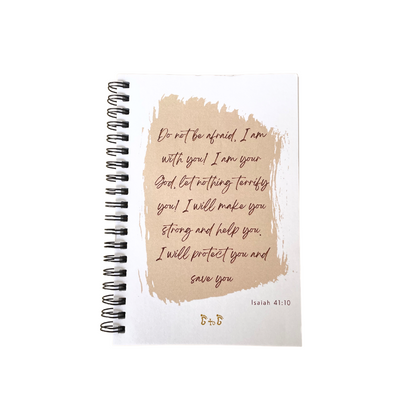 Do not be afraid, I am
with you! I am your
God, let nothing terrify
you! I will make you
strong and help you,
I will protect you and
save you
Isaiah 41:10